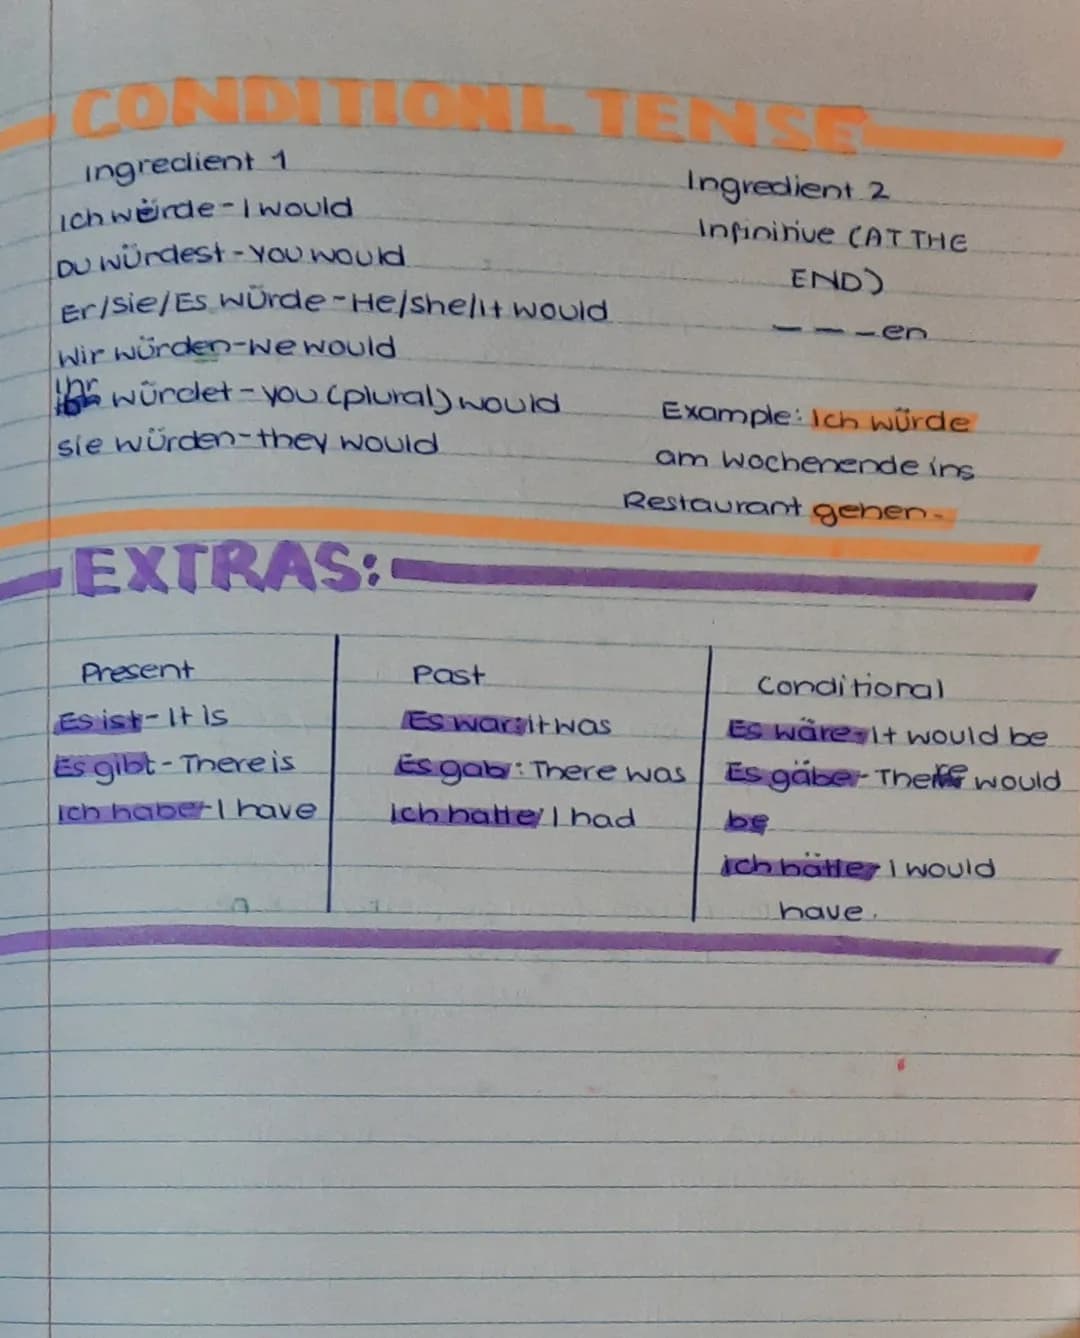 CONDITIONL TENSE
Ingredient 1
Ich würde - I would
Du würdest - you would
Er/Sie/Es würde - He/she/it would
Wir würden - we would
Ihr würdet - you (plural) would
Sie würden - they would
Ingredient 2
Infinitive (AT THE
END)
- - - en
Example: Ich würde
am Wochenende ins
Restaurant gehen.
EXTRAS:
Present
Es ist - It is
Es gibt - There is
Ich habe - I have
Past
Es war: It was
Es gab: There was
Ich hatte: I had
Conditional
Es wäre - It would be
Es gäbe - There would
be
Ich hätte - I would
have.